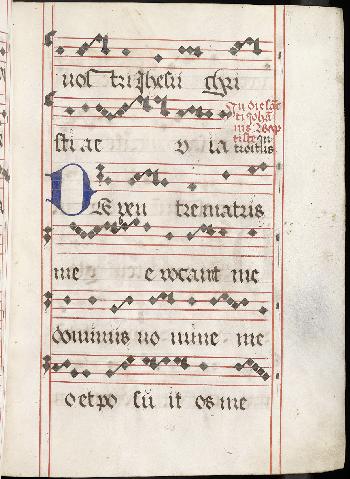 uos tri Jhesu chri
sti ac v ia
In die sanc
ti Joha
nis Bap
tiste in
troitus
De ven tre matris
me e vocauit me
dominus no mine me
o et po su it os me